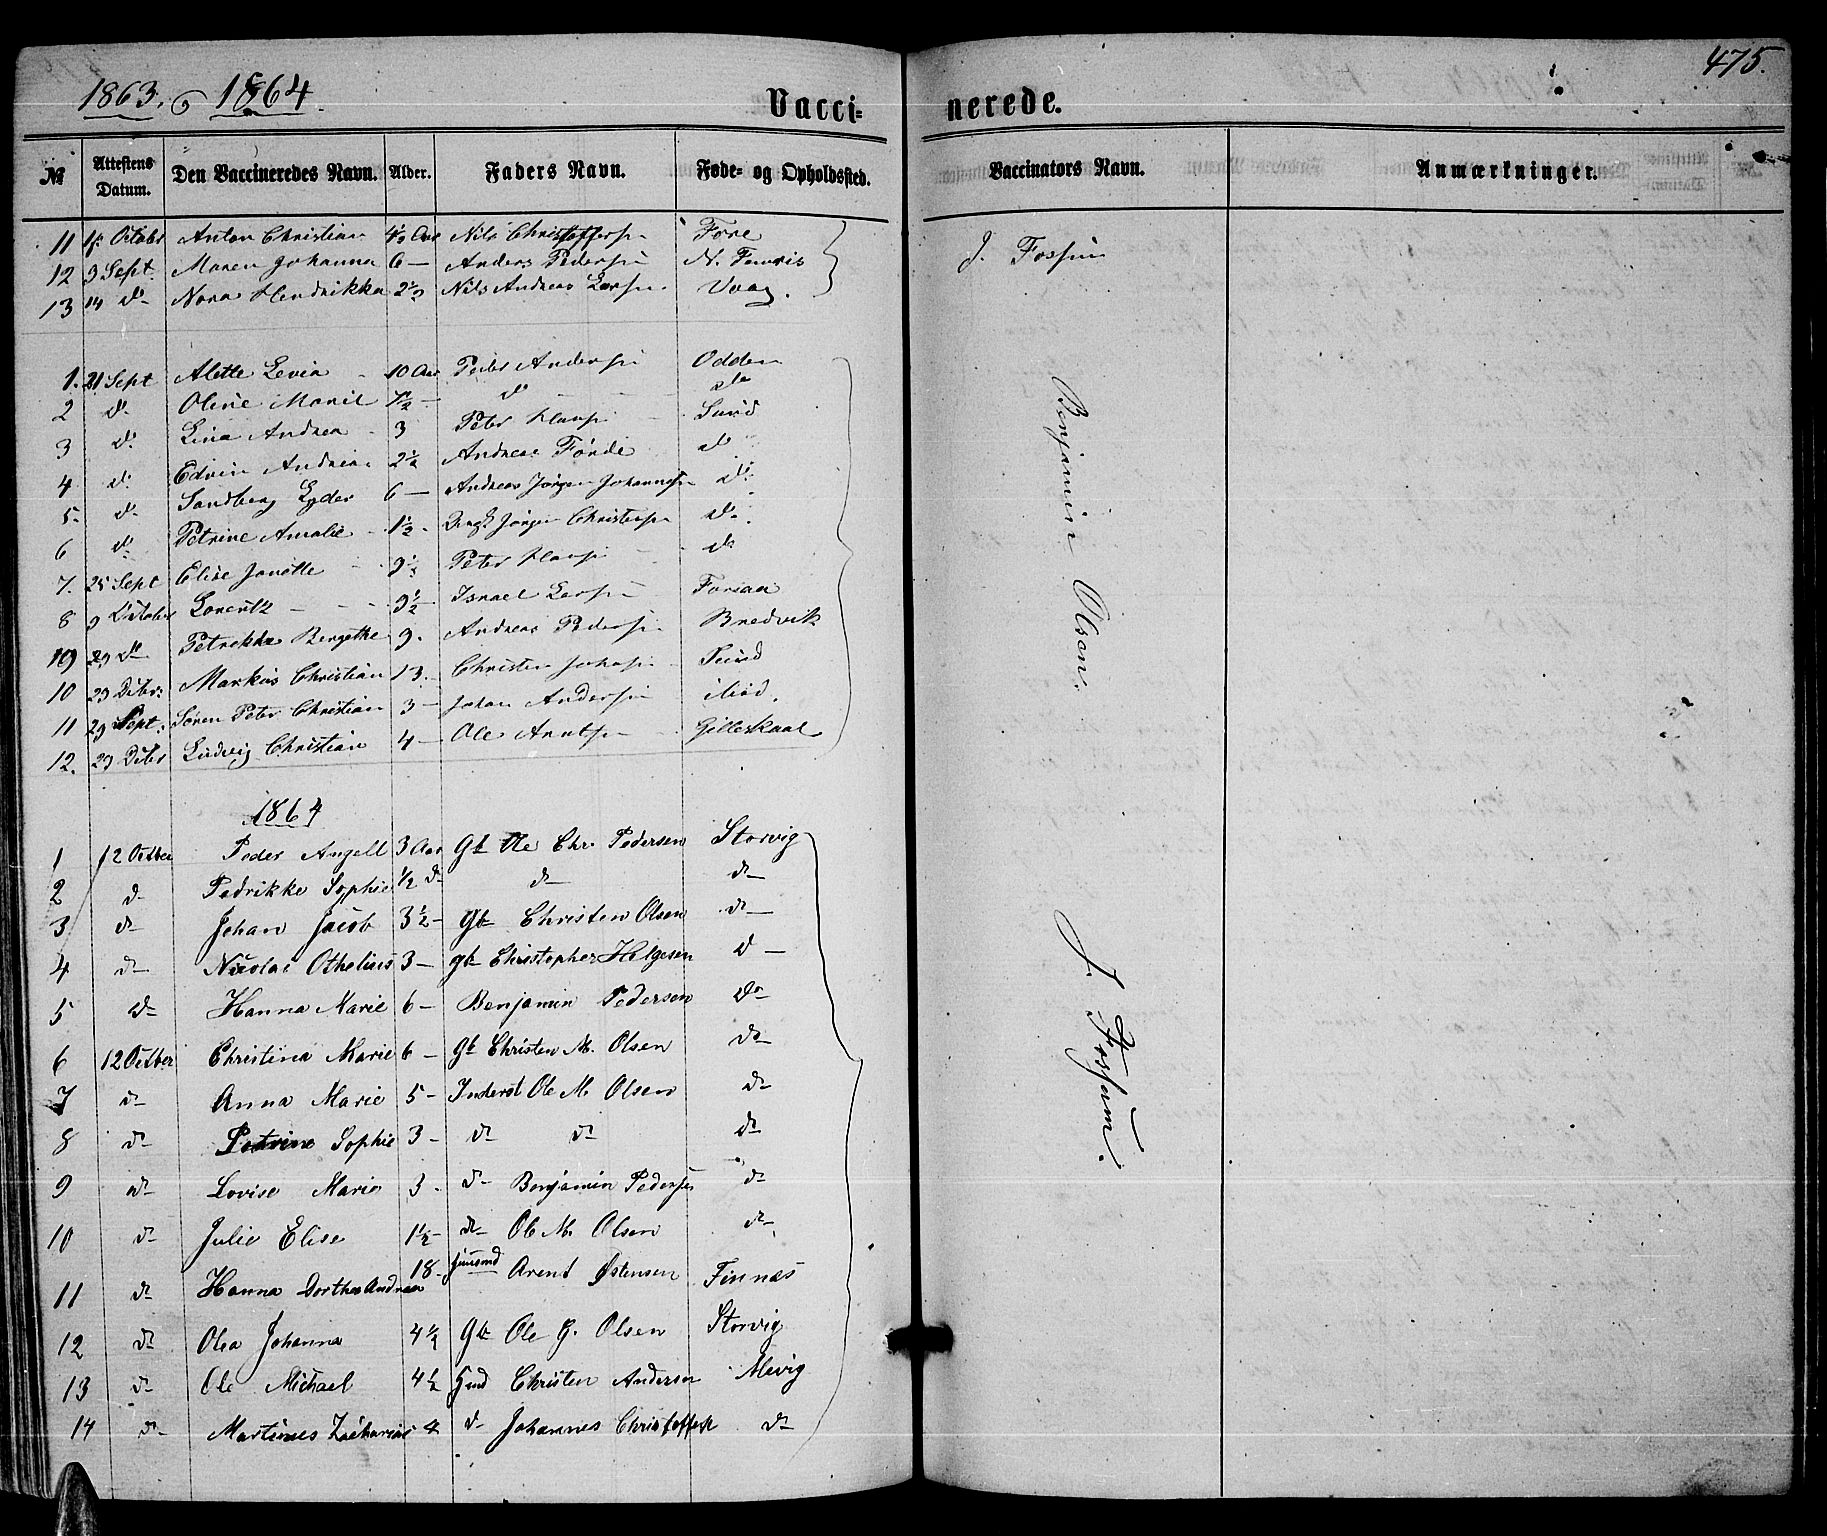 1863. 1864. Vacci= nerede. 475.
№ Attestens Datum. Den Vaccineredes Navn. Alder. Faders Navn. Føde- og Opholdssted. Vaccinators Navn. Anmærkninger.
11 Octobr Anton Christian 4½ Aar Nils Christoffersn Fore J. Fossum
12 3 Sept. Maren Johanna 6 — Anders Pedersn N.
13 14 do Nora Hendrikka 2½ Nils Andreas Larsn. Vaag.
1. 21 Sept Alette Levia 10 Aar Peder Andersn Odden
2 do Oline Marie 1½ — do do
3 do Lina Andrea 3 Peter Klausn Sund
4 do Edvin Andreas 2½ Andreas Førde do
5. do Sandberg Eyder 6 — Andreas Jørgen Johannesn do
6 do Petrine Amalie 1½ Jørgen Christensn do
7. 25 Sept Elise Janette Peter Klausn do
8 9 October Lorentz 9½ Israel Larsn Forian
109 29 do Petrikka Bergethe 9. Andreas Pedersn Bredvik
10 29 Octbr: Markus Christian 13. Christen Johnsn Sund
11 29 Sept: Søren Peter Christian 3 — Johan Andersn
12. 29 Octbr Ludvig Christian 4 — Ole Arntsn Gilleskaal
Benjamin Olsen.
1864
1 12 Octber Peder Angell 3 Aar Gb Ole Chr. Pedersen Storvig
2 do Pedrikke Sophie ½ do do do
3 do Johan Jacob 3½ — Gb Christen Olsen do
4 do Nicolai Othelius 3 — gb Christopher Helgesen do
5 do Hanna Marie 6 — Benjamin Pedersen do
6 12 Octber Christina Marie 6 — Gb Christen M. Olsen do
7 do Anna Marie 5 — Inderst Ole M. Olsen do
8 do Petrine Sophie 3 — do do do
9 do Lovise Marie 3 — do Benjamin Pedersen do
10 do Julie Elise 1½ — do Ole M. Olsen do
11 do Hanna Dorthea Andrea 18 — Huusmd Arent Østensen Finnæs
12 do Olea Johanna 4½ Gb Ole G. Olsen Storvig
13 do Ole Michael 4½ Hmd Christen Andersen Mevig
14 do Martines Zacharias 4 do Johannes Christoffesn do
J. Fossum.